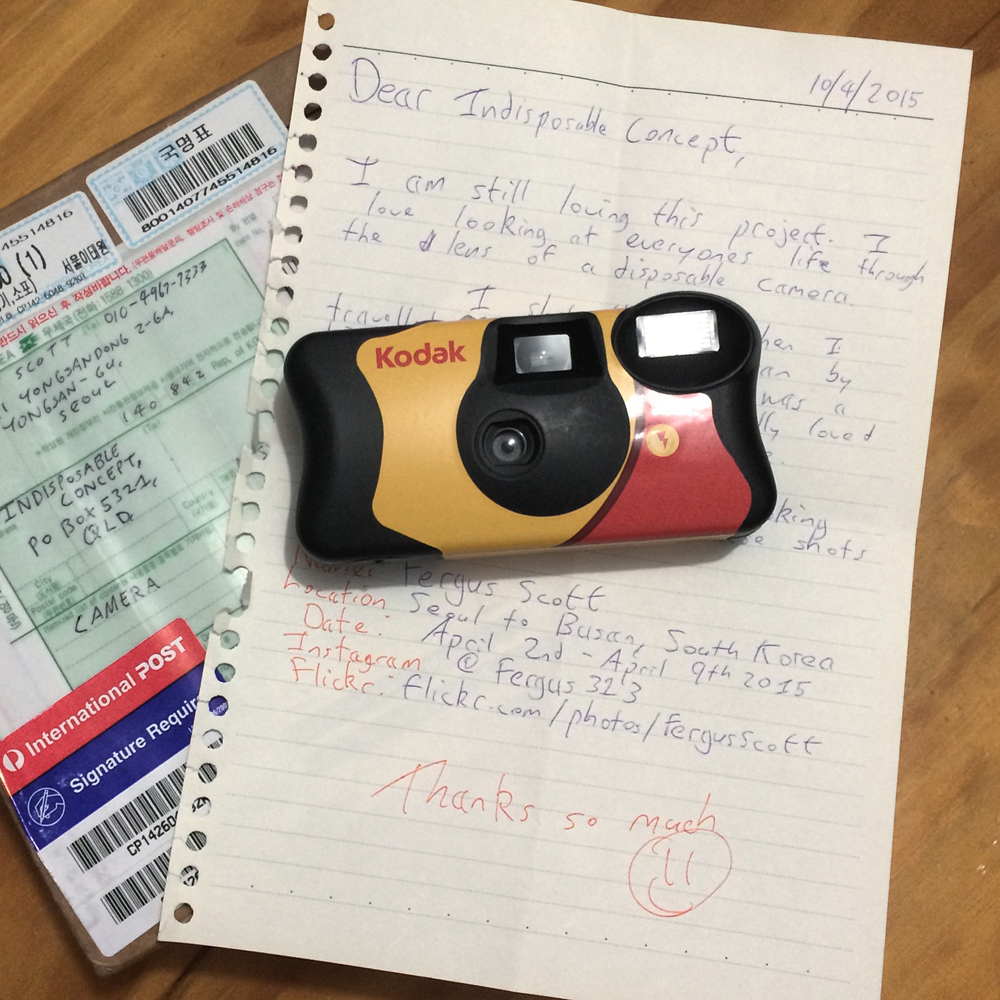 10/4/2015
Dear Indisposable Concept,
I am still loving this project. I
love looking at everyones life through
the lens of a disposable camera.
I
travell
hen I
an by
was a
lly loved
king
e shots
Name: Fergus Scott
Location Seoul to Busan, South Korea
Date: April 2nd - April 9th 2015
Instagram @ Fergus323
Flickr: flickr.com/photos/FergusScott
Thanks so much
Kodak
국명표
8001407745514816
45514816
(1)
서울이태원
반드시 읽으신 후 작성바랍니다.
(전화 1588 1300)
010-4967-7233
SCOTT
YONGSANDONG 2-GA,
YONGSAN-GU,
SEOUL
140 842
INDISPOSABLE
CONCEPT,
PO BOX 5321,
QLD
CAMERA
International POST
Signature Requir
CP14260